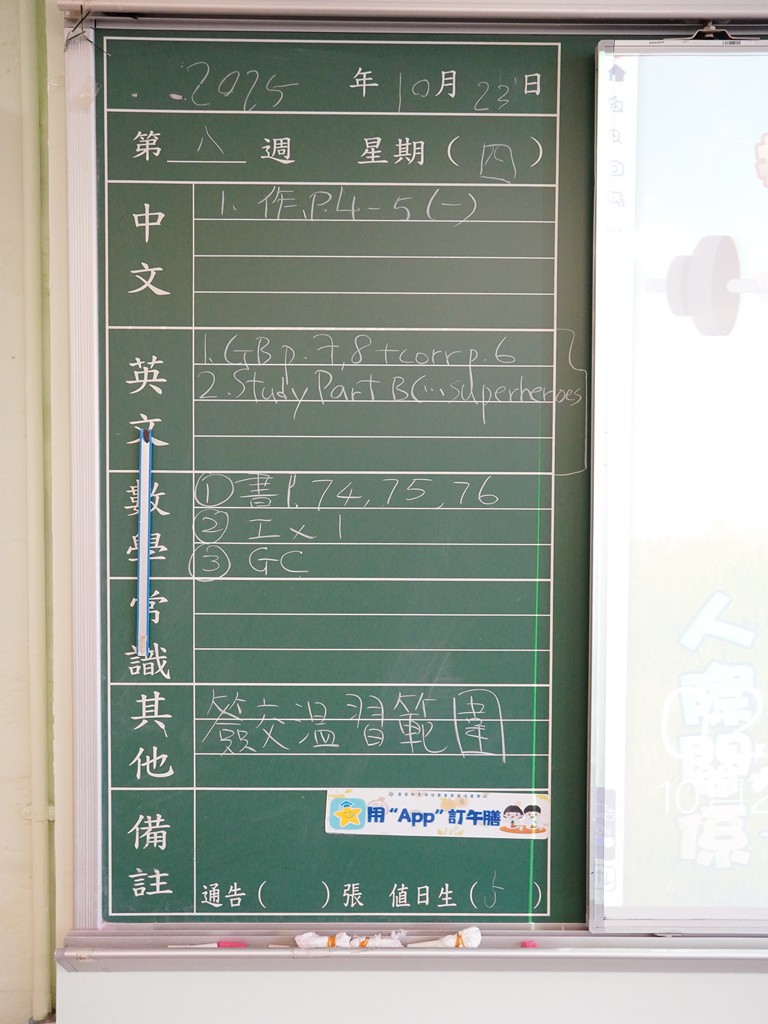 2025 年 10 月 23 日
第 八 週 星期 ( 四 )
中文
1. 作.P.4-5 (一)
英文
1. GB p. 7,8 + corr p. 6
2. Study Part B (... superheroes
數學
① 書P. 74, 75, 76
② 工 x 1
③ GC
常識
其他
簽交溫習範圍
備註
用 “App” 訂午膳
通告 ( ) 張 值日生 ( 5 )
人際關係